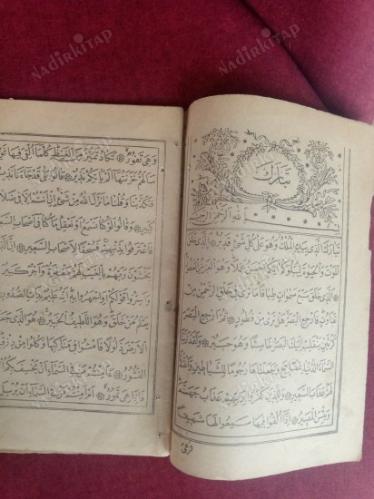 تبارك
بسم الله الرحمن الرحيم
تبارك الذي بيده الملك وهو على كل شئ قدير الذي خلق
الموت والحيوة ليبلوكم ايكم احسن عملا وهو العزيز الغفور
الذي خلق سبع سموات طباقا ما ترى في خلق الرحمن من
تفاوت فارجع البصر هل ترى من فطور ثم ارجع البصر
كرتين ينقلب اليك البصر خاسئا وهو حسير ولقد زينا
السماء الدنيا بمصابيح وجعلناها رجوما للشياطين واعتدنا
لهم عذاب السعير وللذين كفروا بربهم عذاب جهنم
وبئس المصير اذا القوا فيها سمعوا لها شهيقا
وهي تفور تكاد تميز من الغيظ كلما القي فيها فوج
سالهم خزنتها الم ياتكم نذير قالوا بلى قد جاءنا نذير
فكذبنا وقلنا ما نزل الله من شئ ان انتم الا في ضلال
كبير وقالوا لو كنا نسمع او نعقل ما كنا في اصحاب السعير
فاعترفوا بذنبهم فسحقا لاصحاب السعير ان الذين
يخشون ربهم بالغيب لهم مغفرة واجر كبير
واسروا قولكم او اجهروا به انه عليم بذات الصدور
يعلم من خلق وهو اللطيف الخبير
الارض ذلولا فامشوا في مناكبها وكلوا من رزقه
النشور ءامنتم من في السماء ان يخسف بكم
فاذا هي تمور ام امنتم من في السماء ان يرسل
NADİRKİTAP